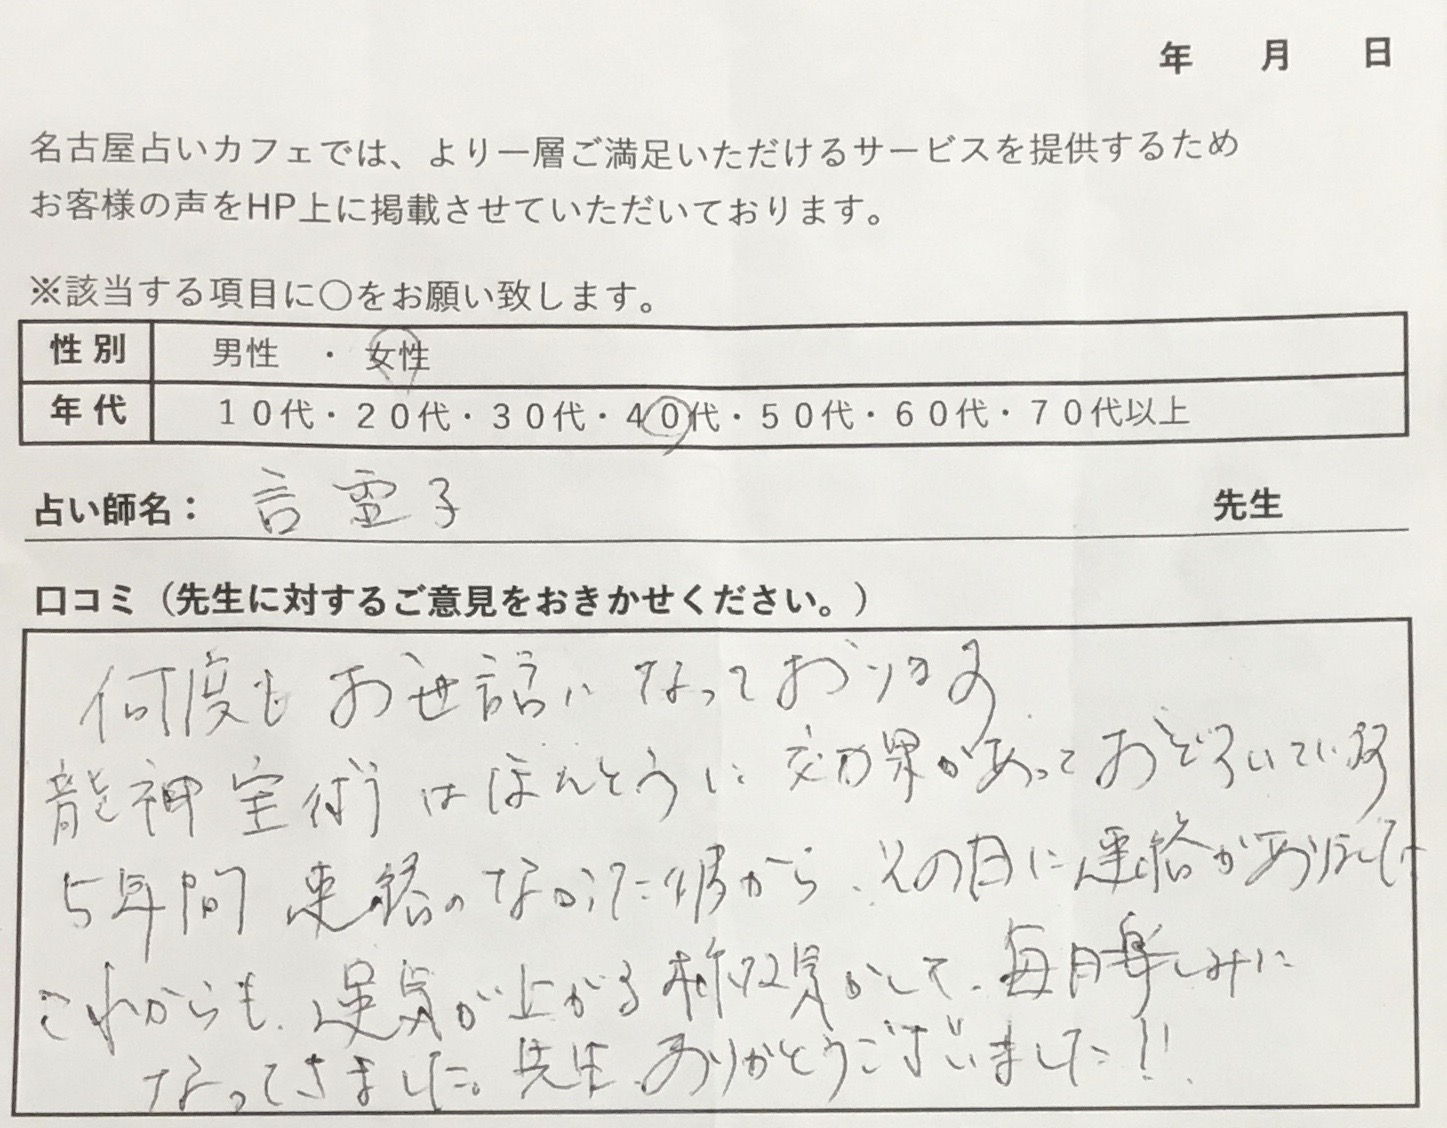 年 月 日
名古屋占いカフェでは、より一層ご満足いただけるサービスを提供するため
お客様の声をHP上に掲載させていただいております。
※該当する項目に〇をお願い致します。
性別 男性 ・ 女性
年代 10代・20代・30代・40代・50代・60代・70代以上
占い師名： 言霊子 先生
口コミ（先生に対するご意見をおきかせください。）
何度もお世話になっております
龍神宝術はほんとうに効果があっておどろいています
5年間連絡のなかった彼から、その日に連絡がありまして
これからも、運気が上がる様な気がして、毎月楽しみに
なってきました。先生、ありがとうございました!!